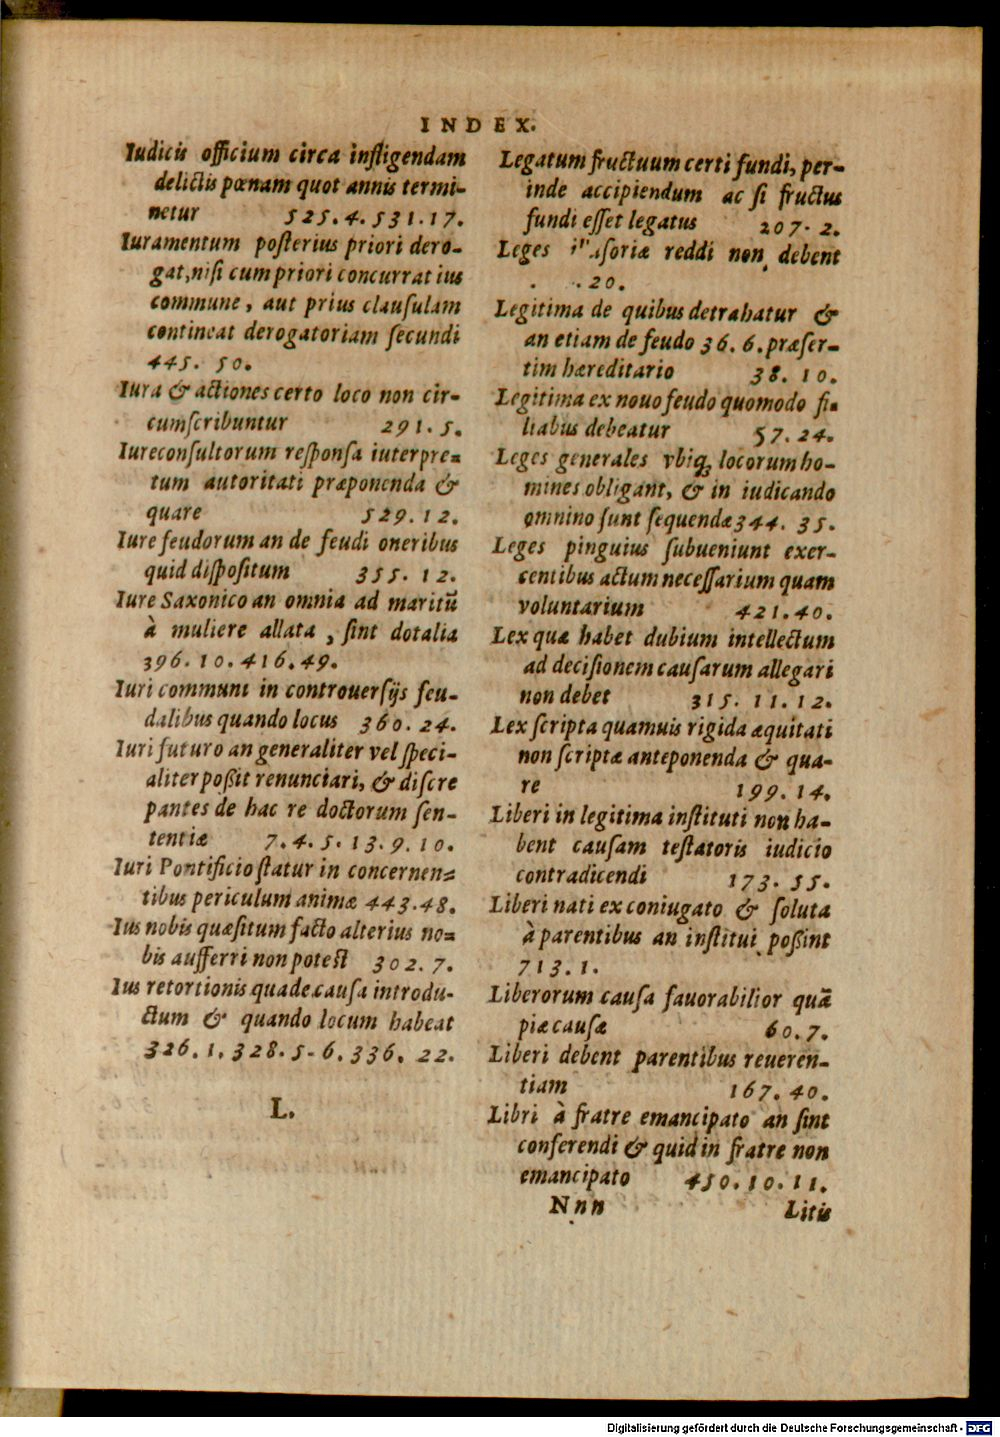 INDEX.
Iudicis officium circa infligendam
delictis pœnam quot annis termi-
netur 525.4.531.17.
Iuramentum posterius priori dero-
gat, nisi cum priori concurrat ius
commune, aut prius clausulam
contineat derogatoriam secundi
445. 50.
Iura & actiones certo loco non cir-
cumscribuntur 291.5.
Iureconsultorum responsa iuterpre-
tum autoritati præponenda &
quare 529.12.
Iure feudorum an de feudi oneribus
quid dispositum 355. 12.
Iure Saxonico an omnia ad maritū
à muliere allata, sint dotalia
396.10.416.49.
Iuri communi in controuersijs feu-
dalibus quando locus 360.24.
Iuri futuro an generaliter vel speci-
aliter poßit renunciari, & discre
pantes de hac re doctorum sen-
tentiæ 7.4.5.13.9.10.
Iuri Pontificio statur in concernen-
tibus periculum animæ 443.48.
Ius nobis quæsitum facto alterius no-
bis aufferri non potest 302.7.
Ius retortionis qua de causa introdu-
ctum & quando locum habeat
326.1.328.5-6.336. 22.
L.
Legatum fructuum certi fundi, per-
inde accipiendum ac si fructus
fundi esset legatus 207. 2.
Leges reddi non debent
20.
Legitima de quibus detrahatur &
an etiam de feudo 36.6.præser-
tim hæreditario 38. 10.
Legitima ex nouo feudo quomodo fi-
liabus debeatur 57.24.
Leges generales vbiq; locorum ho-
mines obligant, & in iudicando
omnino sunt sequendæ 344. 35.
Leges pinguius subueniunt exer-
centibus actum necessarium quam
voluntarium 421.40.
Lex quæ habet dubium intellectum
ad decisionem causarum allegari
non debet 315. 11. 12.
Lex scripta quamuis rigida æquitati
non scriptæ anteponenda & qua-
re 199.14.
Liberi in legitima instituti non ha-
bent causam testatoris iudicio
contradicendi 173. 55.
Liberi nati ex coniugato & soluta
à parentibus an institui poßint
713.1.
Liberorum causa fauorabilior quā
piæ causæ 60.7.
Liberi debent parentibus reueren-
tiam 167.40.
Libri à fratre emancipato an sint
conferendi & quid in fratre non
emancipato 450.10.11.
Nnn Litis
Digitalisierung gefördert durch die Deutsche Forschungsgemeinschaft - DFG